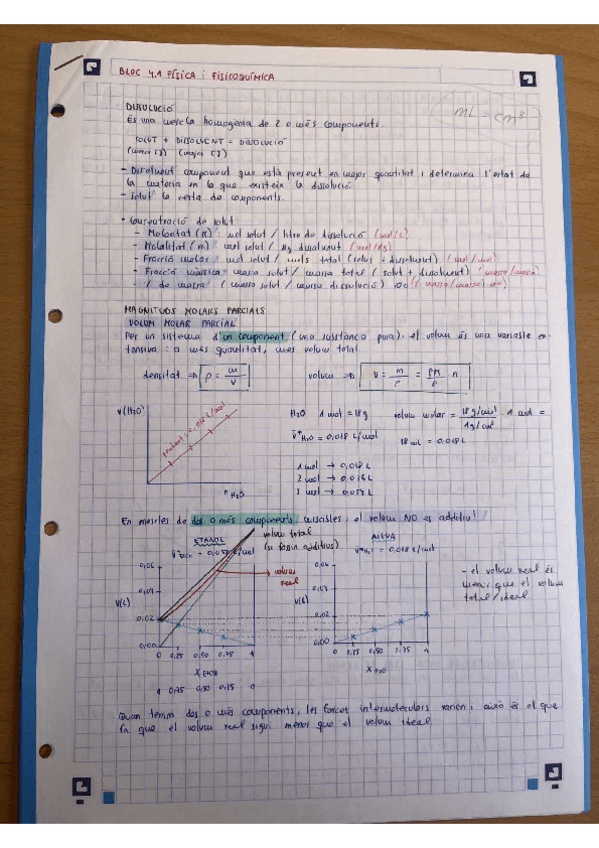 BLOC 4.1 FÍSICA i FISICOQUÍMICA
mL = cm³
DISSOLUCIÓ
És una mescla homogènia de 2 o més components.
SOLUT + DISSOLVENT = DISSOLUCIÓ
- Dissolvent component que està present en major quantitat i determina l'estat de
la matèria en la que existeix la dissolució.
- Solut la resta de components.
- Concentració de solut
- Molaritat (M) mol solut / litre de dissolució (mol/L)
- Molalitat (m) mol solut / kg dissolvent (mol/kg)
- Fracció molar mol solut / mols total (solut + dissolvent) (mol/mol)
- Fracció màssica massa solut / massa total (solut + dissolvent) (massa/massa)
- % de massa (massa solut / massa dissolució) 100 (massa/massa · 100)
MAGNITUDS MOLARS PARCIALS
VOLUM MOLAR PARCIAL
Per un sistema d'un component (una substància pura) el volum és una variable ex-
tensiva: a més quantitat, més volum total.
densitat ⇒ ρ = m/V volum ⇒ V = m/ρ = PM/ρ n
V(H₂O)
pendent = 0,018 L/mol
n H₂O
H₂O 1 mol = 18g volum molar = 18g/mol / 1g/cm³ · 1 mol =
V*H₂O = 0,018 L/mol 18 mL = 0,018L
1 mol → 0,018L
2 mol → 0,036L
3 mol → 0,054L
En mescles de dos o més components miscibles: el volum NO és additiu!
ETANOL
volum total
(si fossin additius)
AIGUA
V*H₂O = 0,018 L/mol
volum
real
- el volum real és
menor que el volum
total/ideal
0,06
0,04
V(L)
0,02
0,00
0 0,25 0,50 0,75 1
X EtOH
1 0,75 0,50 0,25 0
0,06
V(L)
0,02
0,00
0 0,25 0,50 0,75 1
X H₂O
Quan tenim dos o més components, les forces intermoleculars varien i això és el que
fa que el volum real sigui menor que el volum ideal.